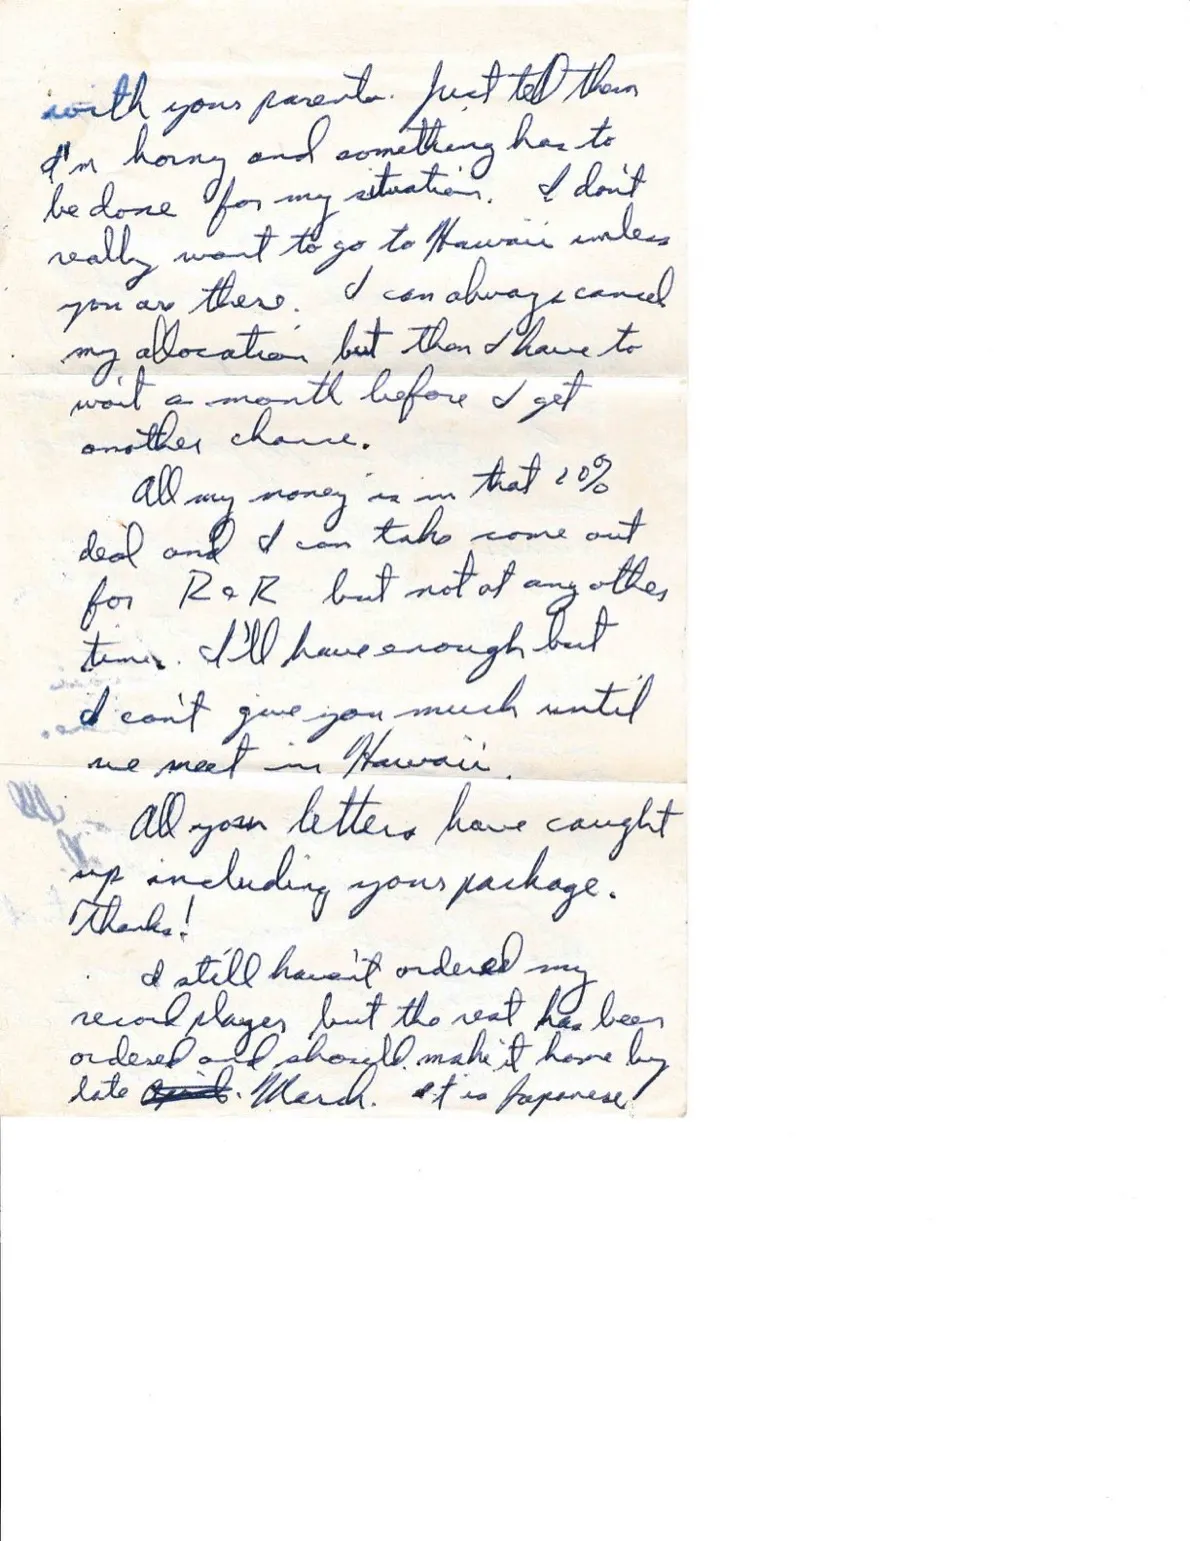 with your parents. Just tell them
I'm horny and something has to
be done for my situation. I don't
really want to go to Hawaii unless
you are there. I can always cancel
my allocation but then I have to
wait a month before I get
another chance.
All my money is in that 10%
deal and I can take some out
for R & R but not at any other
time. I'll have enough but
I can't give you much until
we meet in Hawaii.
All your letters have caught
up including your package.
Thanks!
I still haven't ordered my
record player but the rest has been
ordered and should make it home by
late March. It is Japanese